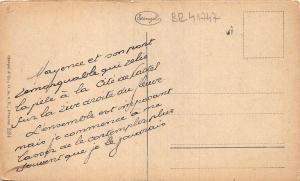 BR41747
Mayence et son pont
remarquable qui relie
la ville à la Cité de Castel
sur la rive droite du fleuve
L'ensemble est imposant
mais je commence à me
lasser de le contempler plus
souvent que je le voudrais